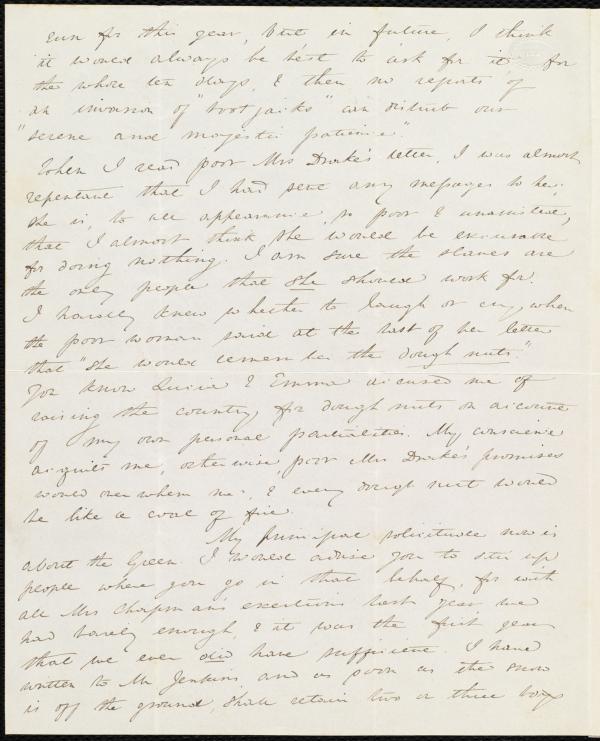 even for this year, but in future, I think
it would always be best to ask for it for
the whole ten days, & then no reports of
an invasion of "bootjacks" can disturb our
"serene and majestic patience."
When I read poor Mrs Drake's letter, I was almost
repentant that I had sent any messages to her.
She is, to all appearance, so poor & unassisted,
that I almost think she would be excusable
for doing nothing. I am sure the slaves are
the only people that she should work for.
I hardly knew whether to laugh or cry, when
the poor woman said at the last of her letter
that "she would remember the dough nuts."
You know Lucia & Emma accused me of
raising the country, for dough nuts on account
of my own personal partialities. My conscience
acquits me, otherwise, poor Mrs Drake's promises
would overwhelm me, & every dough nut would
be like a coal of fire.
My principal solicitude now is
about the Green. I would advise you to stir up
people where you go in that behalf, for with
all Mrs Chapman's exertions last year, we
had barely enough, & it was the first year
that we ever did have sufficient. I have
written to Mr Jenkins, and as soon as the snow
is off the ground, shall retain two or three boys